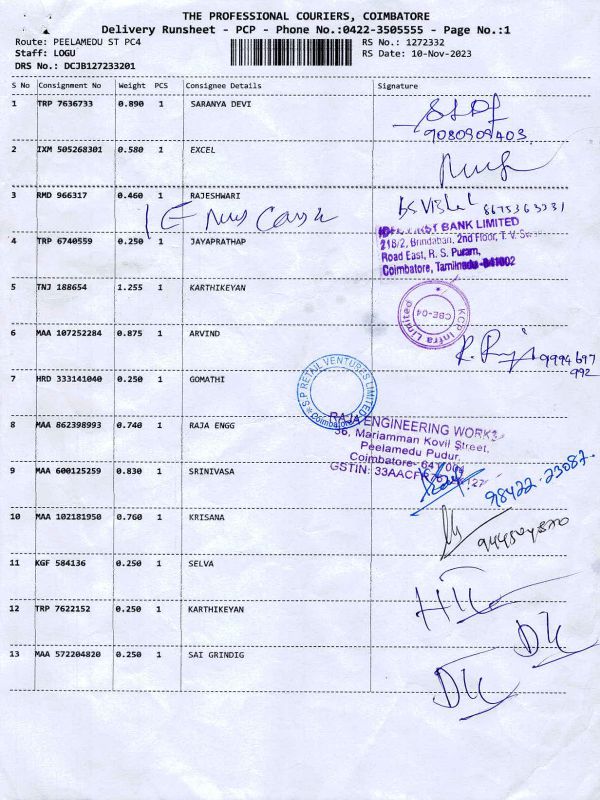 THE PROFESSIONAL COURIERS, COIMBATORE
Delivery Runsheet - PCP - Phone No.:0422-3505555 - Page No.:1
Route: PEELAMEDU ST PC4 RS No.: 1272332
Staff: LOGU RS Date: 10-Nov-2023
DRS No.: DCJB127233201
S No Consignment No Weight PCS Consignee Details Signature
1 TRP 7636733 0.890 1 SARANYA DEVI
9080909403
2 IXM 505268301 0.580 1 EXCEL
3 RMD 966317 0.460 1 RAJESHWARI
8675363331
BANK LIMITED
218/2, Brindaban, 2nd Floor, T. V. 
Road East, R. S. Puram,
Coimbatore, Tamilnadu-641002
4 TRP 6740559 0.250 1 JAYAPRATHAP
5 TNJ 188654 1.255 1 KARTHIKEYAN
KCP Infra Limited
CBE-04
6 MAA 107252284 0.875 1 ARVIND
9994697
992
7 HRD 333141040 0.250 1 GOMATHI
S P RETAIL VENTURES LIMITED
Coimbatore
8 MAA 862398993 0.740 1 RAJA ENGG
RAJA ENGINEERING WORKS
36, Mariamman Kovil Street,
Peelamedu Pudur,
Coimbatore- 641 004
GSTIN: 33AACF
9 MAA 600125259 0.830 1 SRINIVASA
98422-23087
10 MAA 102181950 0.760 1 KRISANA
11 KGF 584136 0.250 1 SELVA
12 TRP 7622152 0.250 1 KARTHIKEYAN
13 MAA 572204820 0.250 1 SAI GRINDIG